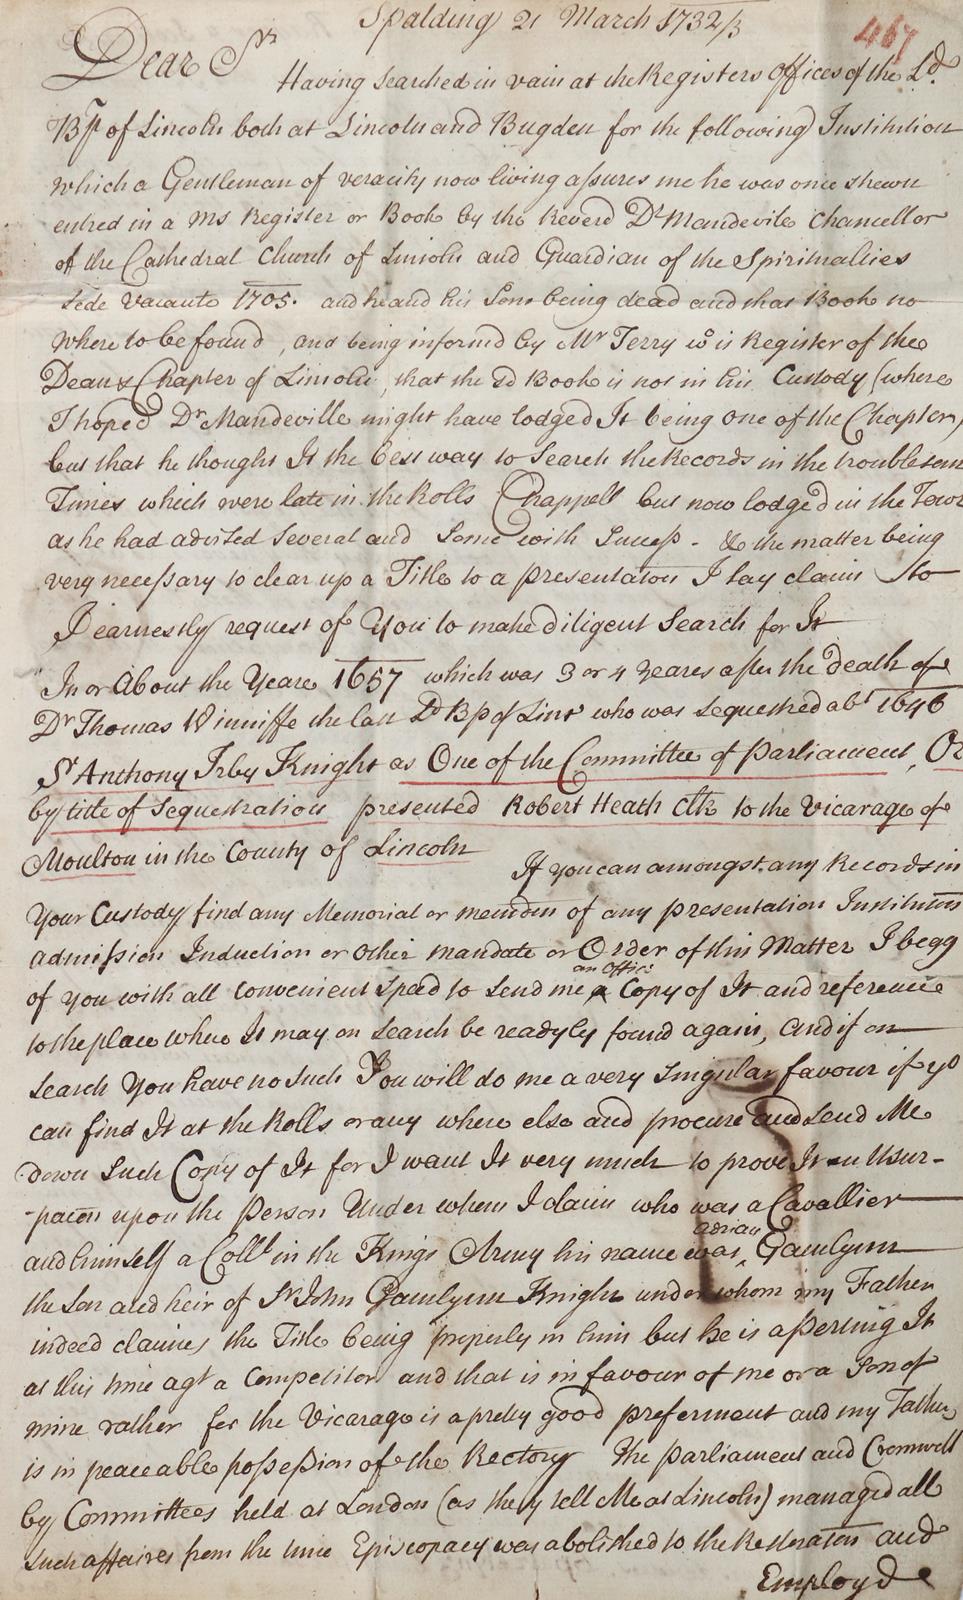 Spalding 21 March 1732/3
467
Dear Sr
Having searched in vain at the Registers Offices of the Ld.
Bp of Lincoln both at Lincoln and Bugden for the following Institution
which a Gentleman of veracity now living assures me he was once shewn
entred in a Ms Register or Book by the Reverd Dr Mandevile Chancellor
of the Cathedral Church of Lincoln and Guardian of the Spiritualties
Sede Vacante 1705. and he and his Sons being dead and that Book no
where to be found, and being informed by Mr Terry wo is Register of the
Dean & Chapter of Lincoln, that the sd Book is not in his Custody (where
I hoped Dr Mandeville might have lodged It being one of the Chapter)
but that he thought It the best way to Search the Records in the troublesom
Times which were late in the Rolls Chappell but now lodged in the Tower
as he had advised Several and Some with Success. & the matter being
very necessary to clear up a Title to a presentaton I lay claim to
I earnestly request of You to make diligent Search for It
In or About the Yeare 1657 which was 3 or 4 yeares after the death of
Dr Thomas Winniffe the last Ld Bp of Linc who was Sequestred abt 1646
Sr Anthony Irby Knight as One of the Committee of Parliament, Or
by title of Sequestration presented Robert Heath Clk to the Vicarage of
Moulton in the County of Lincoln
If you can amongst any Records in
Your Custody find any Memorial or memdm of any presentation Institution
admission Induction or other mandate or Order of this Matter I begg
of you with all convenient Speed to Send me an Office Copy of It and reference
to the place where It may on Search be readyly found again, and if on
Search You have no such You will do me a very Singular favour if yo
can find It at the Rolls or any where else and procure and Send Me
down Such Copy of It for I want It very much to prove It an Usur-
-pacon upon the Person Under whom I claim who was a Cavallier
and himself a Coll in the Kings Army his name was adrian Gamlynn
the Son and heir of Sr John Gamlynn Knight under whom my Father
indeed claimes the Title being properly in him but he is asserting It
at this time agt a Competitor and that is in favour of me or a Son of
mine rather for the Vicarage is a pretty good preferment and my Father
is in peaceable possession of the Rectory The Parliament and Cromwell
by Committees held at London (as they tell Me at Lincoln) managed all
such affaires from the time Episcopacy was abolished to the Restoraton and
Employd